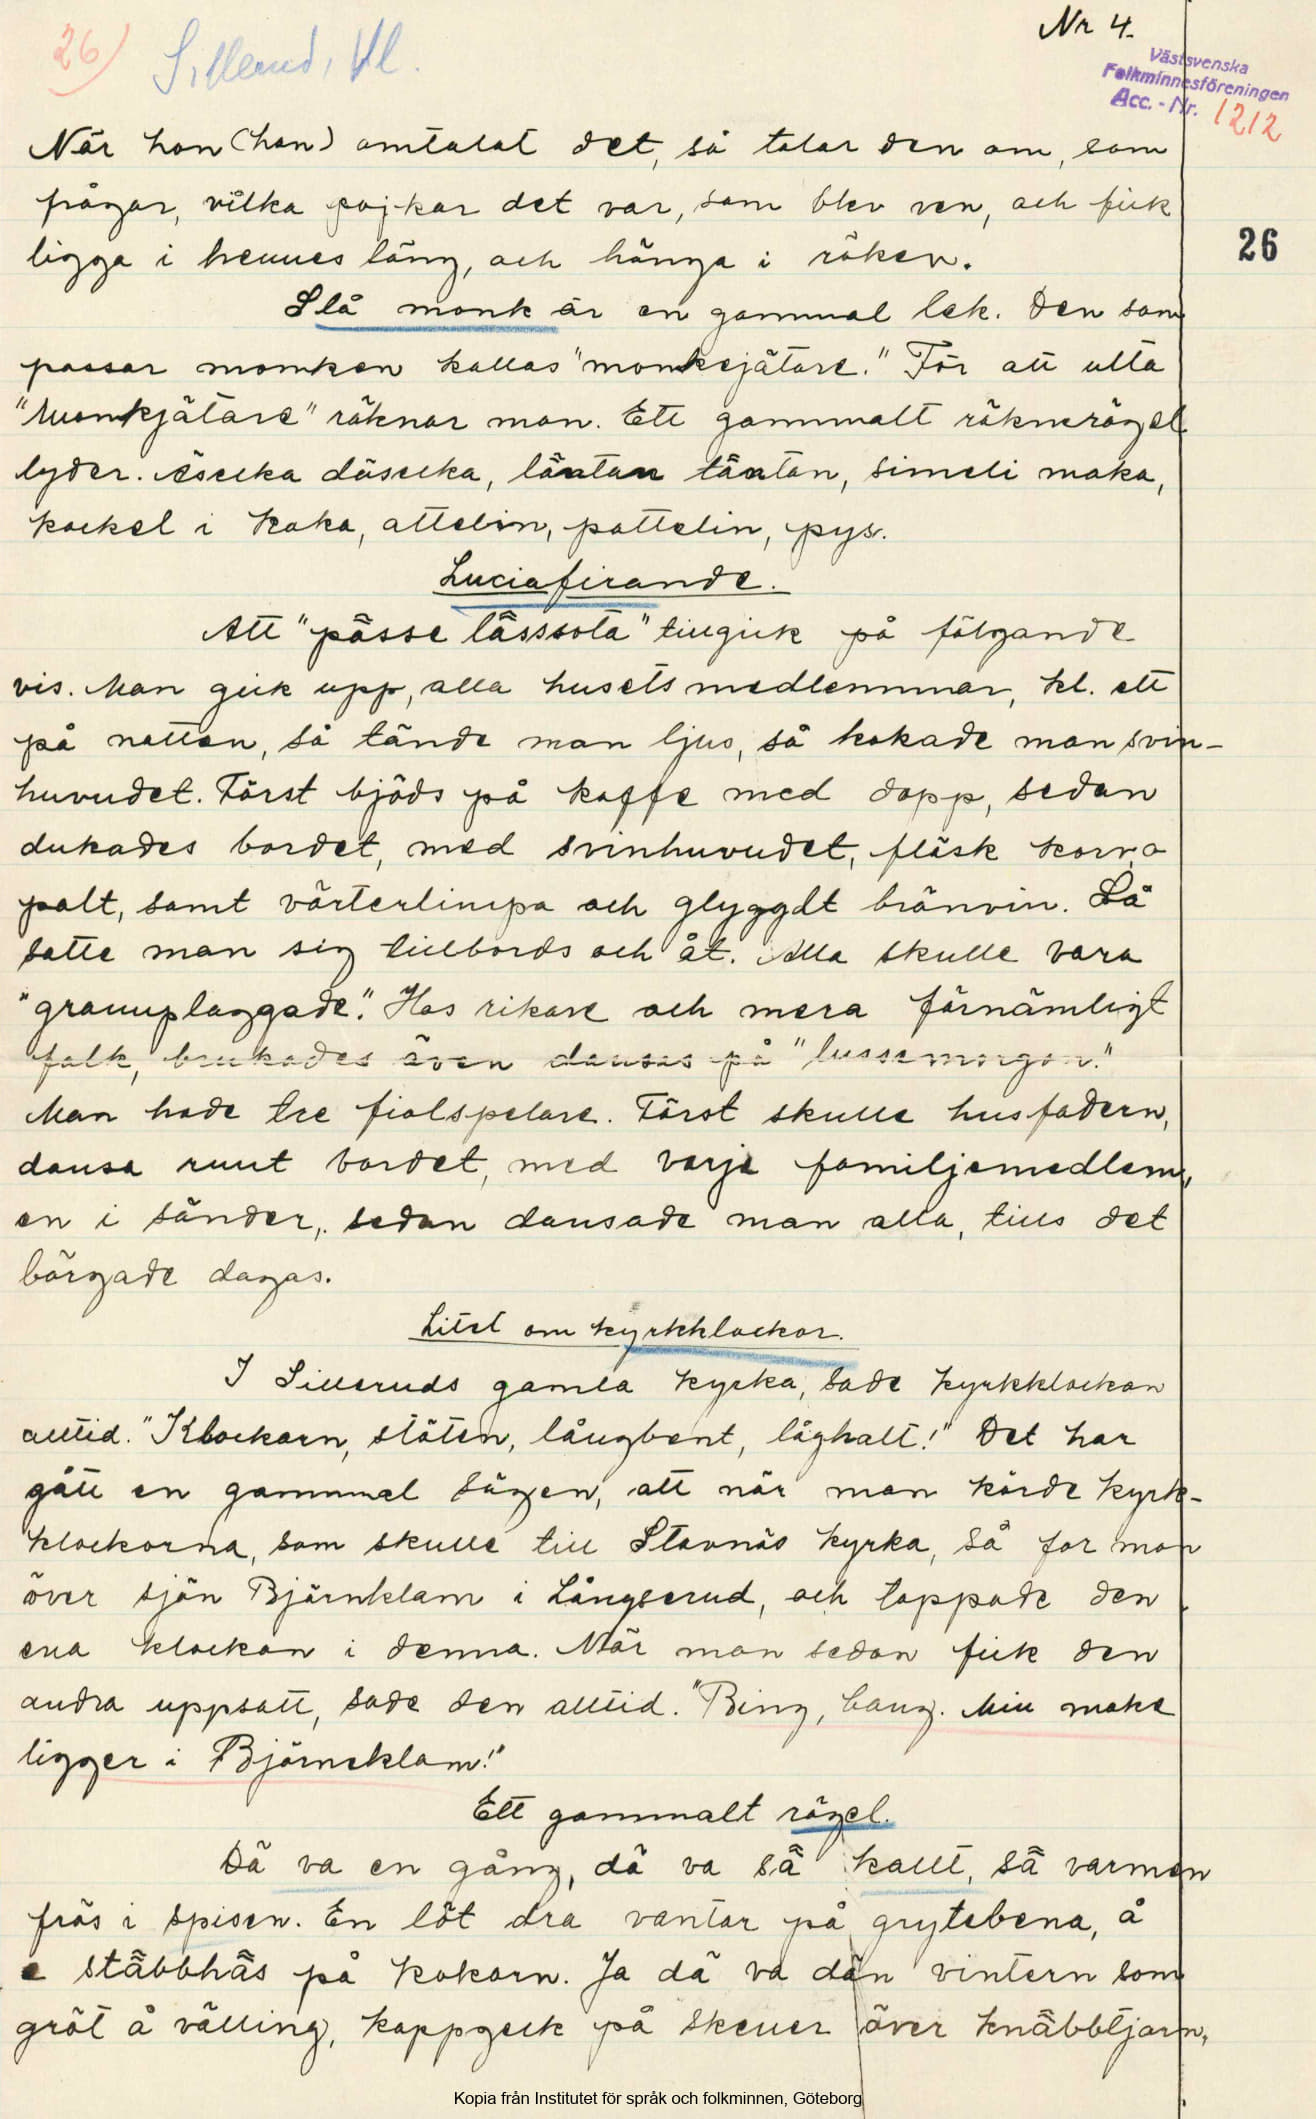 26)
Sillerud, Vl.
Nr 4.
Västsvenska
Folkminnesföreningen
Acc. - Nr. 1212
26
När hon (han) omtalat det, så talar den om, som
frågar, vilka pojkar det var, som blev ven, och fick
ligga i hennes läng, och hänga i röken.
Slå monk är en gammal lek. Den som
passar monken kallas "monkejätare." För att utta
"Monkjätare" räknar man. Ett gammalt räknerägel
lyder. Eselka däselka, läntan täntan, simeli maka,
kockel i kaka, attelin, pattelin, pys.
Luciafirande.
Att "pässe lässsota" tillgick på följande
vis. Man gick upp, alla husets medlemmar, kl. ett
på natten, så tände man ljus, så kokade man svin-
huvudet. Först bjöds på kaffe med dopp, sedan
dukades bordet, med svinhuvudet, fläsk korv, o
palt, samt vörterlimpa och glyggdt bränvin. Så
satte man sig tillbords och åt. Alla skulle vara
"grannplaggade". Hos rikare och mera förnämligt
folk, brukades även dansas på "lussemorgon."
Man hade tre fiolspelare. Först skulle husfadern,
dansa runt bordet, med varje familjemedlem,
en i sänder, sedan dansade man alla, tills det
börgade dagas.
Litet om kyrkklockor.
I Silleruds gamla kyrka, sade kyrkklockan
alltid. "Klockarn, stöten, långbent, låghalt!" Det har
gått en gammal sägen, att när man körde kyrk-
klockorna, som skulle till Stavnäs kyrka, så for man
över sjön Björnklam i Långserud, och tappade den
ena klockan i denna. När man sedan fick den
andra uppsatt, sade den alltid. "Bing, bang. Min make
ligger i Björneklam!"
Ett gammalt rägel.
Dä va en gång, dä va sä kallt, sä varmen
frös i spisen. En löt dra vantar på grytebena, å
e stäbbhäs på kokarn. Ja dä va dän vintern som
gröt å välling, kappgeck på skener över knäbbtjarn,
Kopia från Institutet för språk och folkminnen, Göteborg